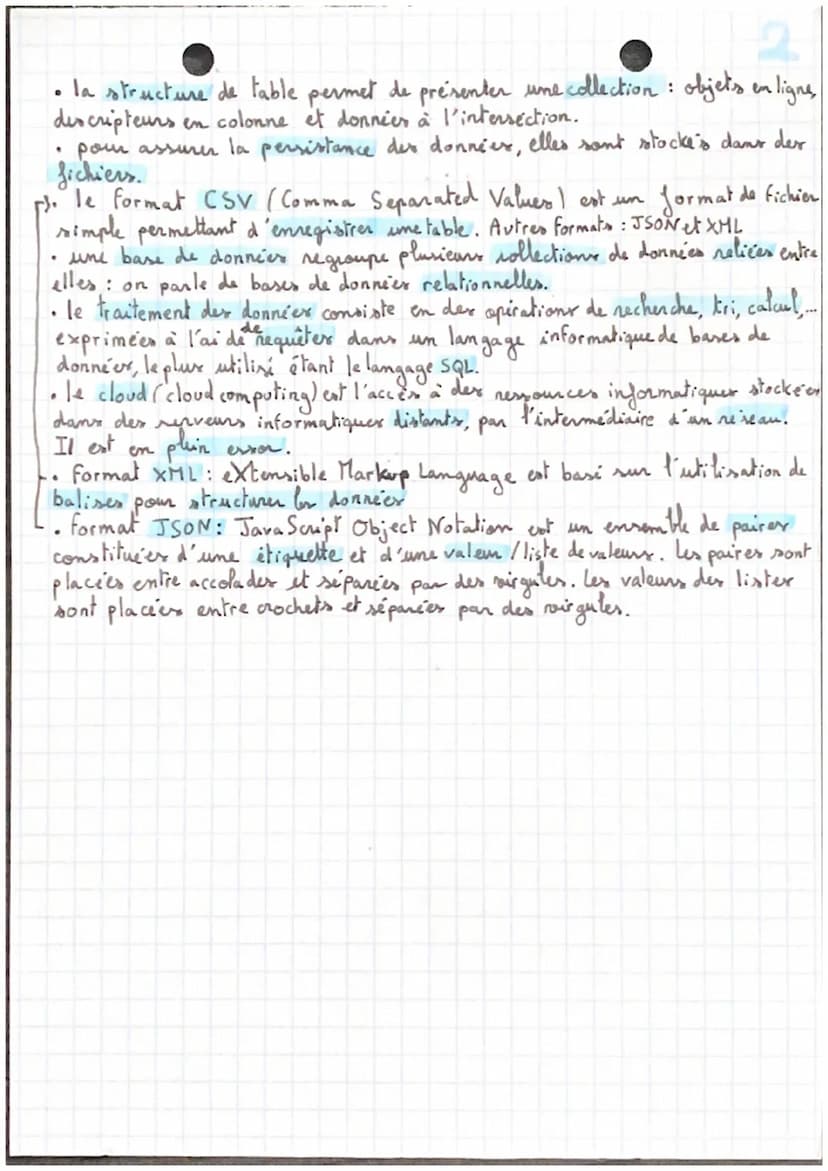 2
• la structure de table permet de présenter une collection : objets en ligne,
descripteurs en colonne et données à l'intersection.
• pour assurer la persistance des données, elles sont stockées dans des
fichiers.
• le format CSV (Comma Separated Values) est un format de fichier
simple permettant d'enregistrer une table. Autres formats : JSON et XML
• une base de données regroupe plusieurs collections de données reliées entre
elles : on parle de bases de données relationnelles.
• le traitement des données consiste en des opérations de recherche, tri, calcul,...
exprimées à l'aide de requêtes dans un langage informatique de bases de
données, le plus utilisé étant le langage SQL.
• le cloud (cloud computing) est l'accès à des ressources informatiques stockées
dans des serveurs informatiques distants, par l'intermédiaire d'un réseau.
Il est en plein essor.
• format XML : eXtensible Markup Language est basé sur l'utilisation de
balises pour structurer les données
• format JSON : JavaScript Object Notation est un ensemble de paires
constituées d'une étiquette et d'une valeur / liste de valeurs. Les paires sont
placées entre accolades et séparées par des virgules. Les valeurs des listes
sont placées entre crochets et séparées par des virgules.